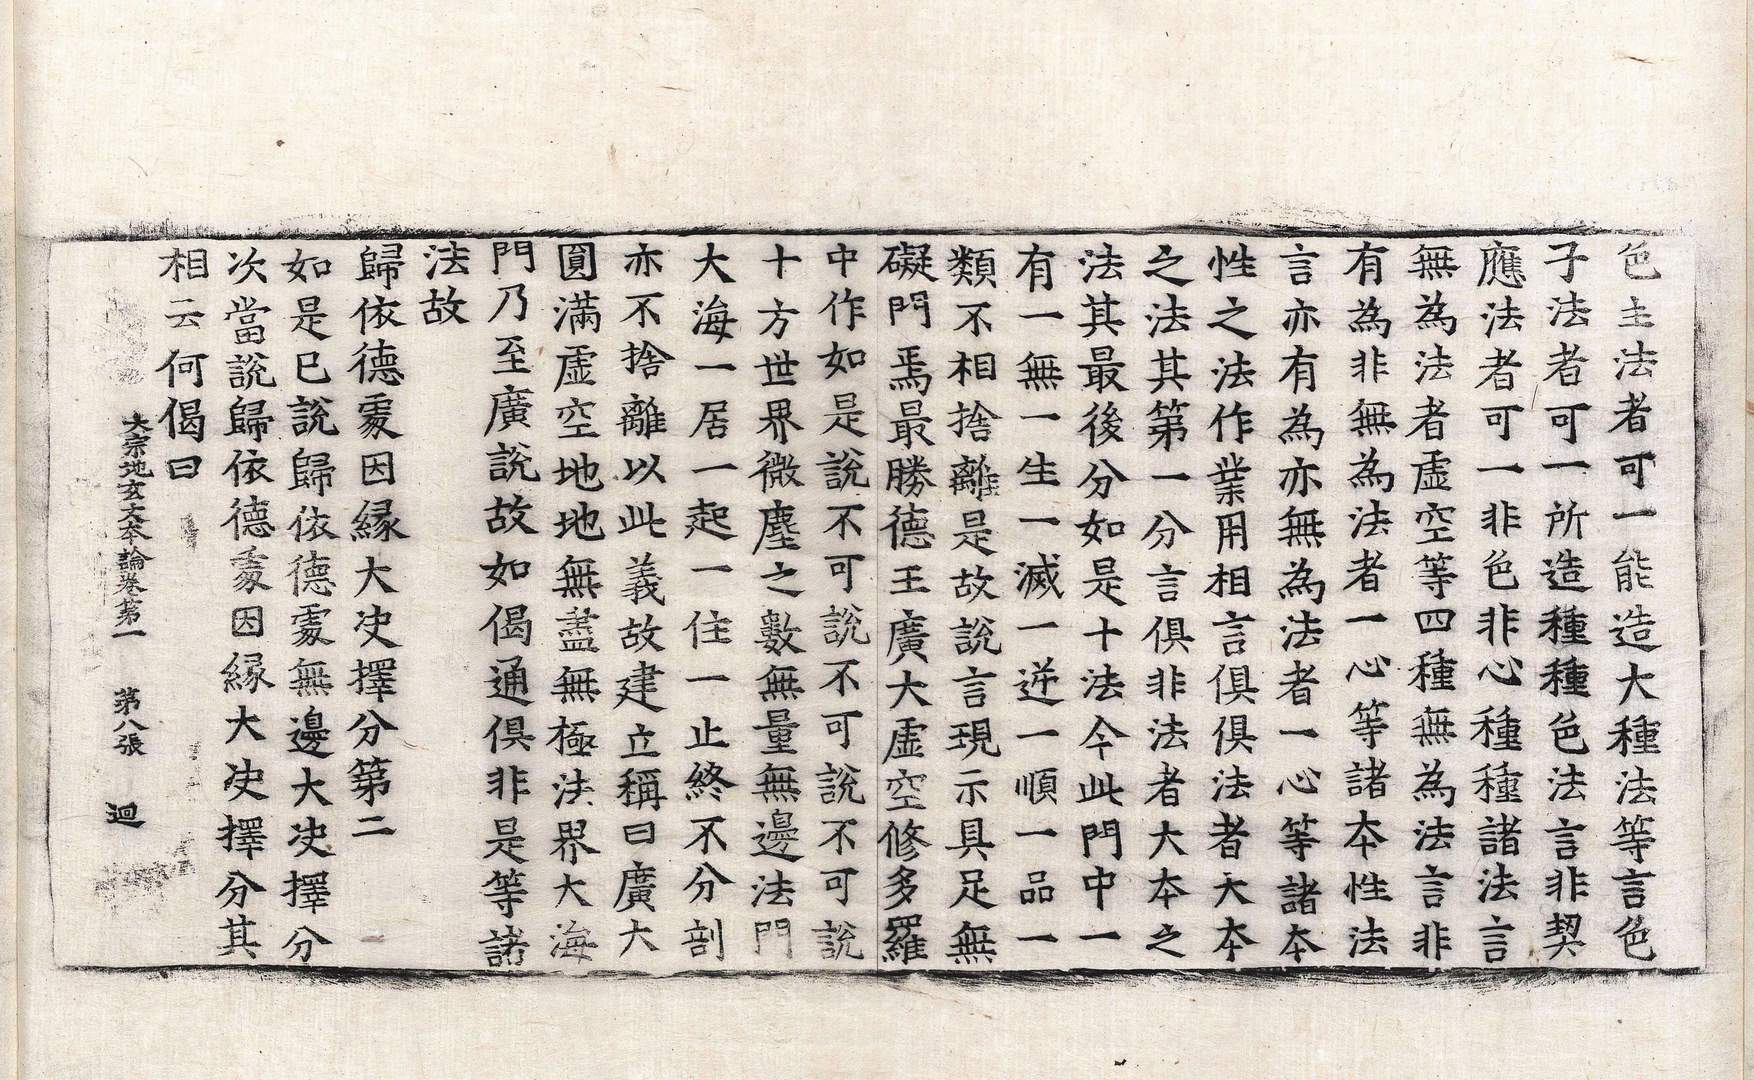 色主法者可一能造大種法等言色
子法者可一所造種種色法言非契
應法者可一非色非心種種諸法言
無為法者虛空等四種無為法言非
有為非無為法者一心等諸本性法
言亦有為亦無為法者一心等諸本
性之法作業用相言俱俱法者大本
之法其第一分言俱非法者大本之
法其最後分如是十法今此門中一
有一無一生一滅一逆一順一品一
類不相捨離是故說言現示具足無
礙門焉最勝德王廣大虛空修多羅
中作如是說不可說不可說不可說
十方世界微塵之數無量無邊法門
大海一居一起一住一止終不分剖
亦不捨離以此義故建立稱曰廣大
圓滿虛空地地無盡無極法界大海
門乃至廣說故如偈通俱非是等諸
法故
歸依德處因縁大决擇分第二
如是已說歸依德處無邊大决擇分
次當說歸依德處因縁大决擇分其
相云何偈曰
大宗地玄文本論卷第一 第八張 迴